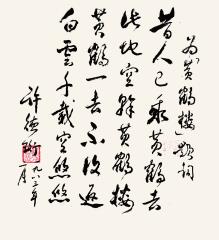 为黄鹤楼题词
昔人已乘黄鹤去
此地空馀黄鹤楼
黄鹤一去不复返
白云千载空悠悠
许德珩
一九八三年
一月